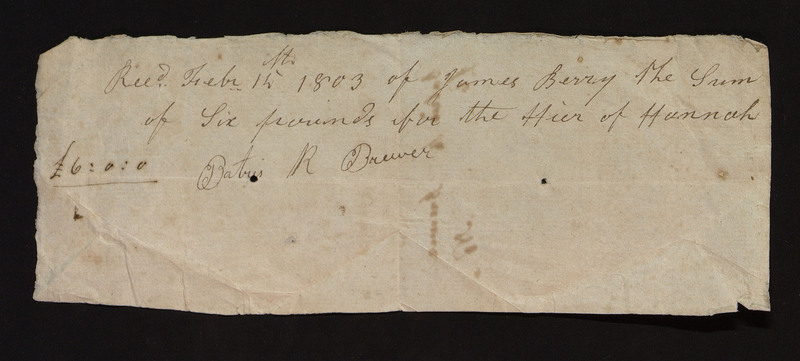 Recd. Febr. 15th 1803 of James Berry the Sum
of Six pounds for the Hier of Hannah
£6:0:0 R Brewer